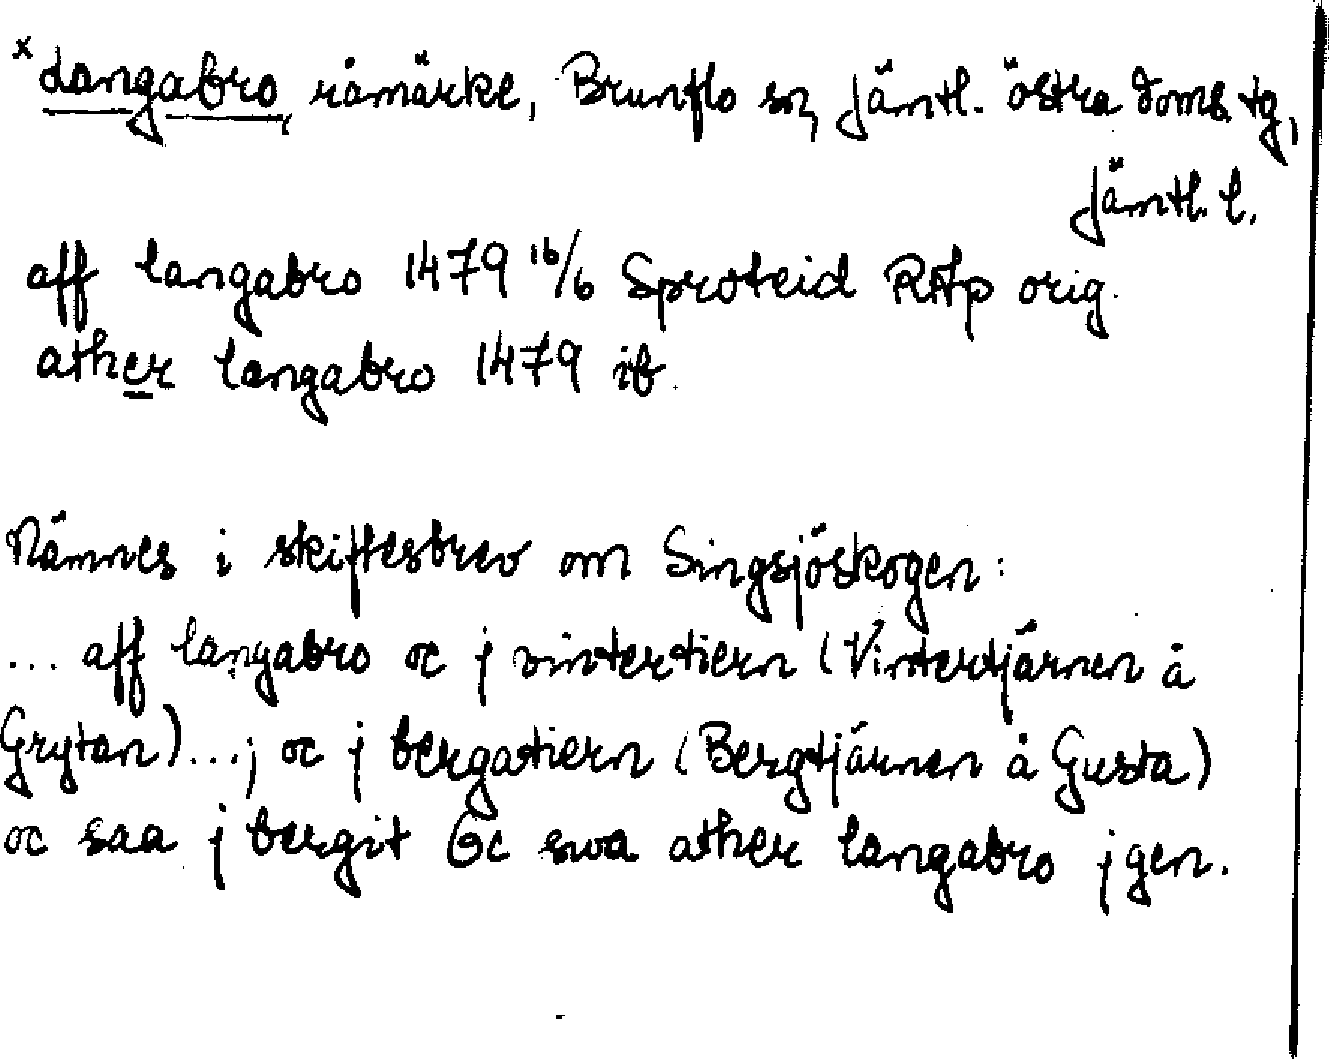 x Langabro, råmärke, Brunflo sn, Jämtl. östra doms. tg,
Jämtl. l.
aff langabro 1479 16/6 Sproteid RAp orig.
ather langabro 1479 ib.
Nämnes i skiftesbrev om Singsjöskogen:
... aff langabro oc j vintertiern (Vintertjärnen å
Grytan)...; oc j bergatiern (Bergtjärnen å Gusta)
oc saa j bergit Oc swa ather langabro jgen.